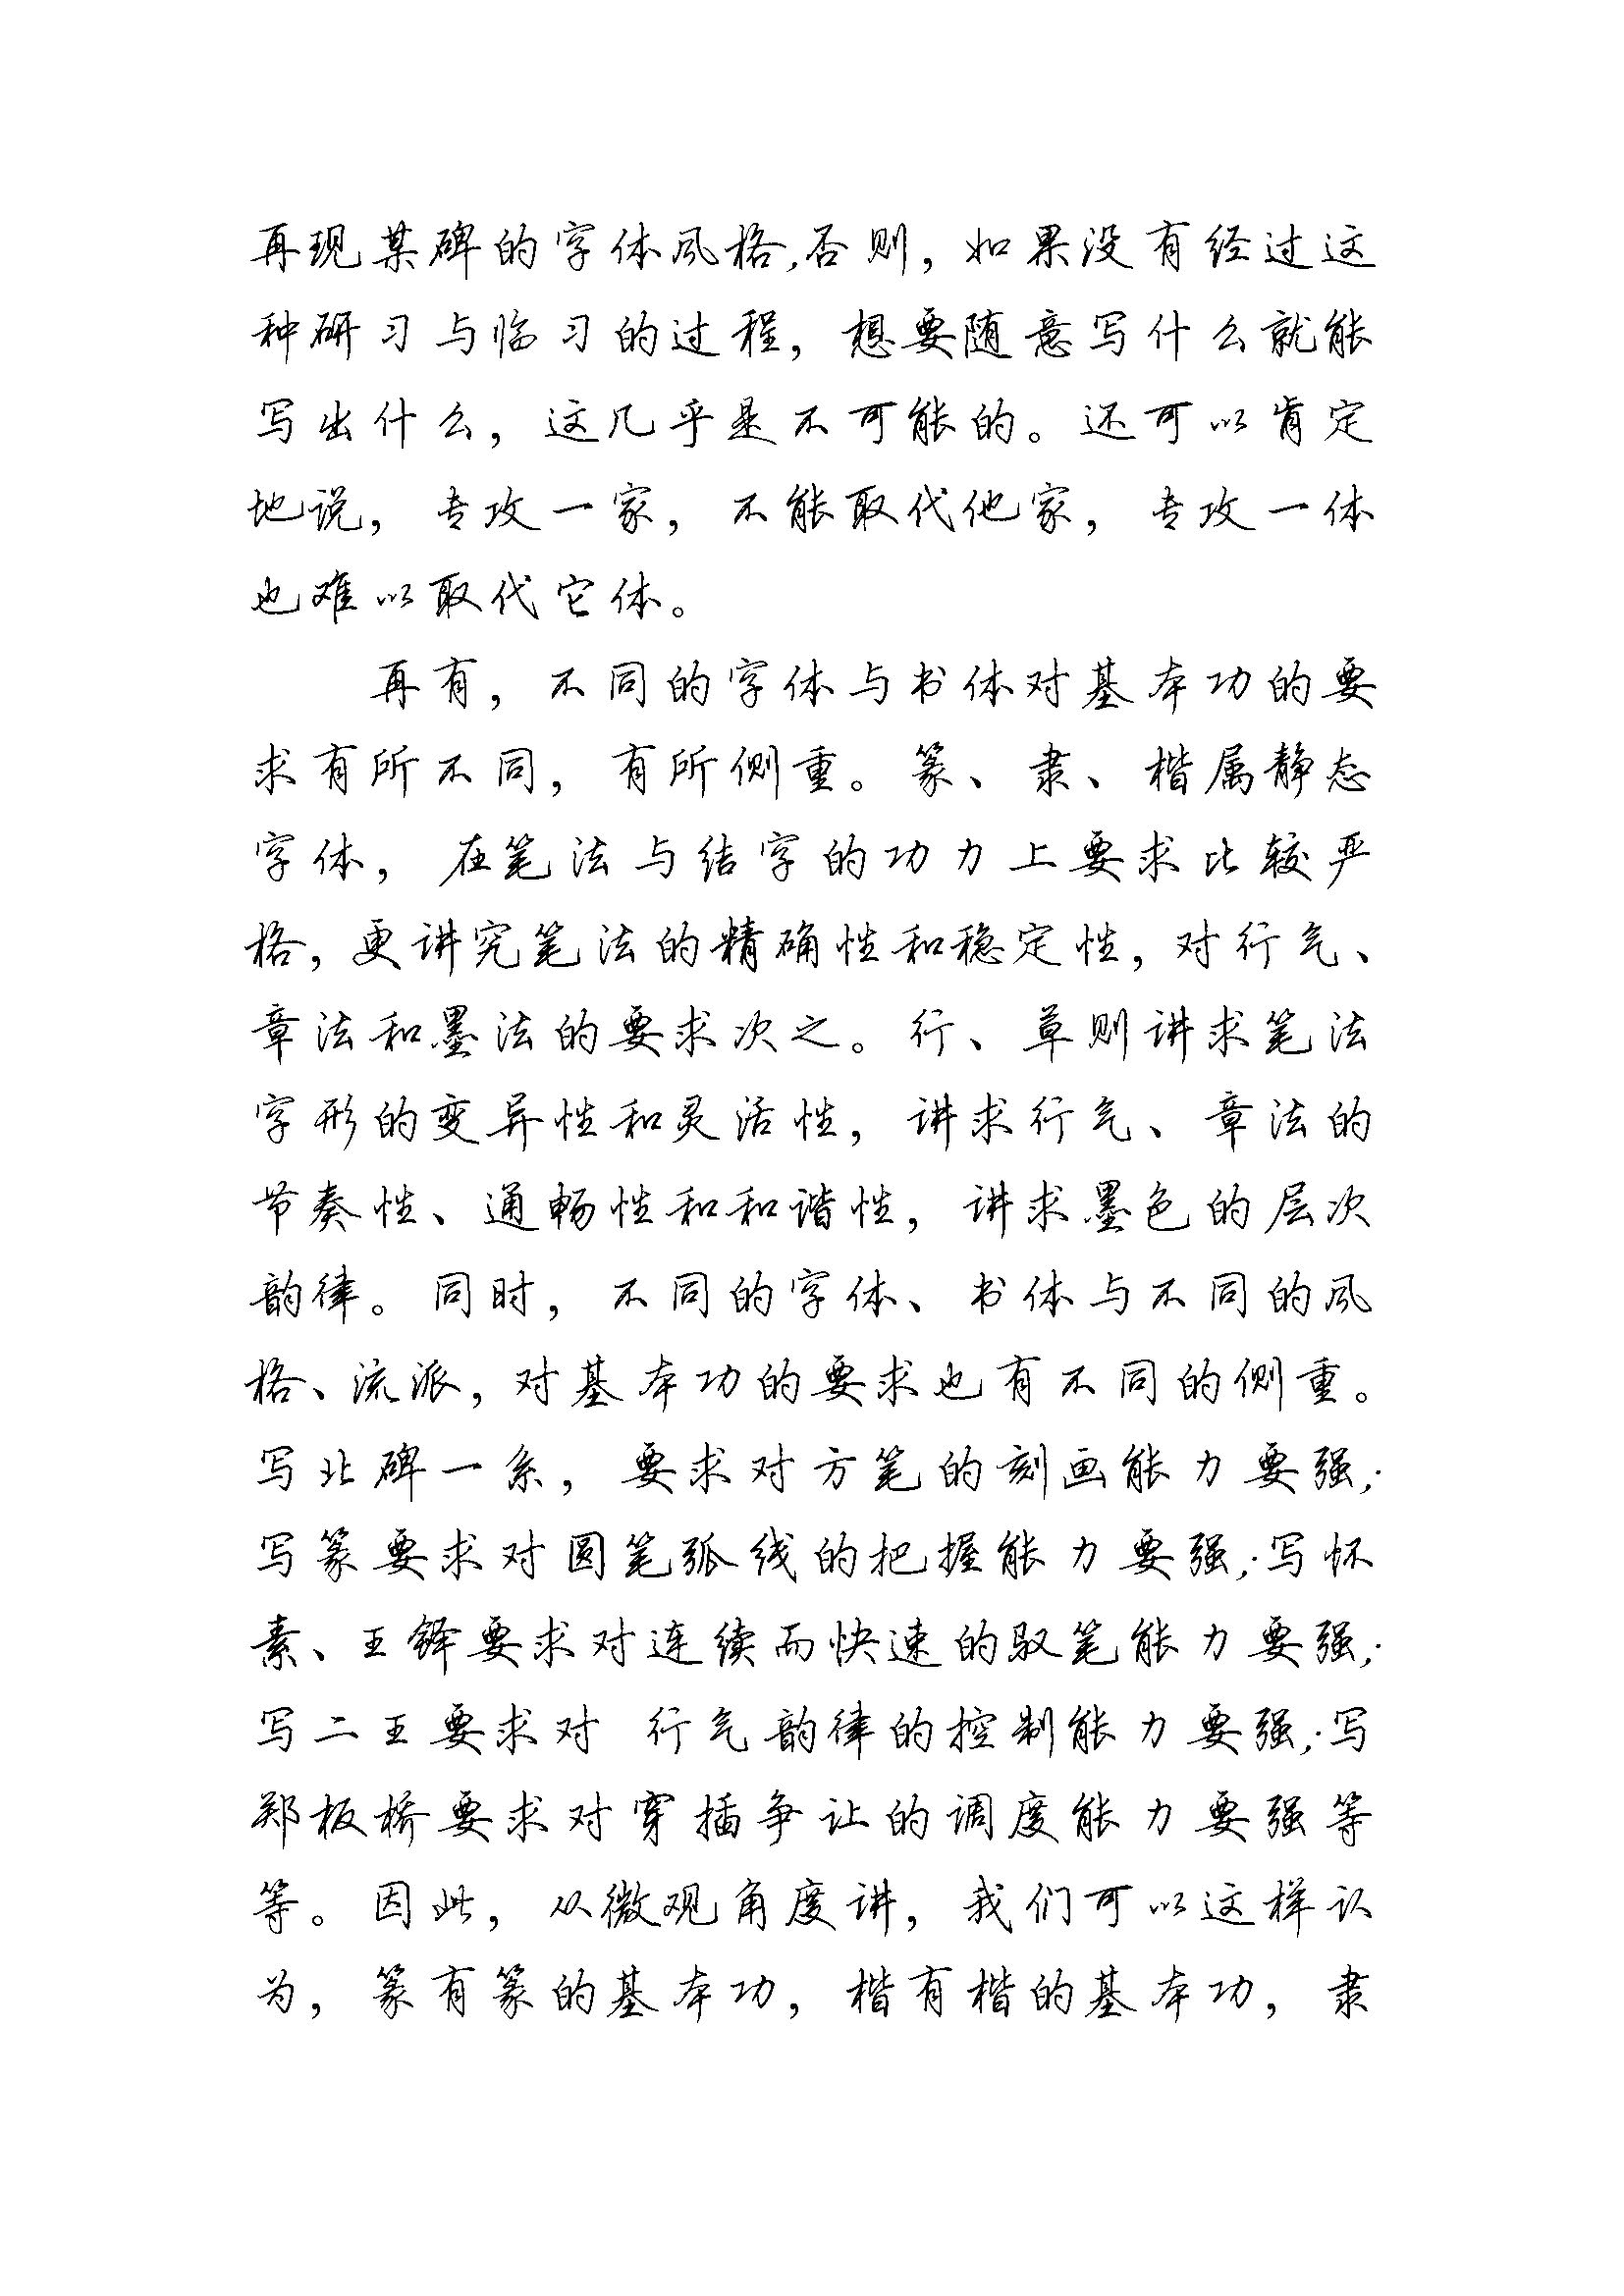 再现某碑的字体风格,否则，如果没有经过这
种研习与临习的过程，想要随意写什么就能
写出什么，这几乎是不可能的。还可以肯定
地说，专攻一家，不能取代他家，专攻一体
也难以取代它体。
再有，不同的字体与书体对基本功的要
求有所不同，有所侧重。篆、隶、楷属静态
字体，在笔法与结字的功力上要求比较严
格，更讲究笔法的精确性和稳定性，对行气、
章法和墨法的要求次之。行、草则讲求笔法
字形的变异性和灵活性，讲求行气、章法的
节奏性、通畅性和和谐性，讲求墨色的层次
韵律。同时，不同的字体、书体与不同的风
格、流派，对基本功的要求也有不同的侧重。
写北碑一系，要求对方笔的刻画能力要强；
写篆要求对圆笔弧线的把握能力要强；写怀
素、王铎要求对连续而快速的驭笔能力要强；
写二王要求对 行气韵律的控制能力要强；写
郑板桥要求对穿插争让的调度能力要强等
等。因此，从微观角度讲，我们可以这样认
为，篆有篆的基本功，楷有楷的基本功，隶